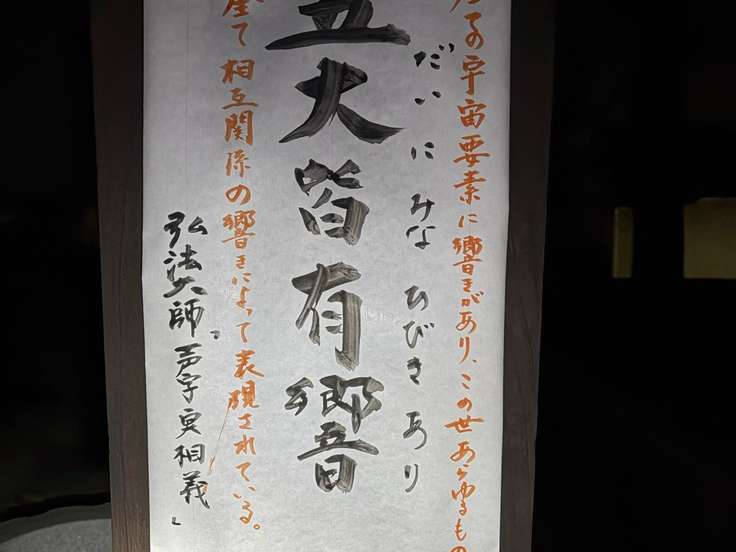 の宇宙要素に響きがあり、この世あらゆるもの
だいにみなひびきあり
五大皆有響
全て相互関係の響きによって表現されている。
弘法大師「声字実相義」